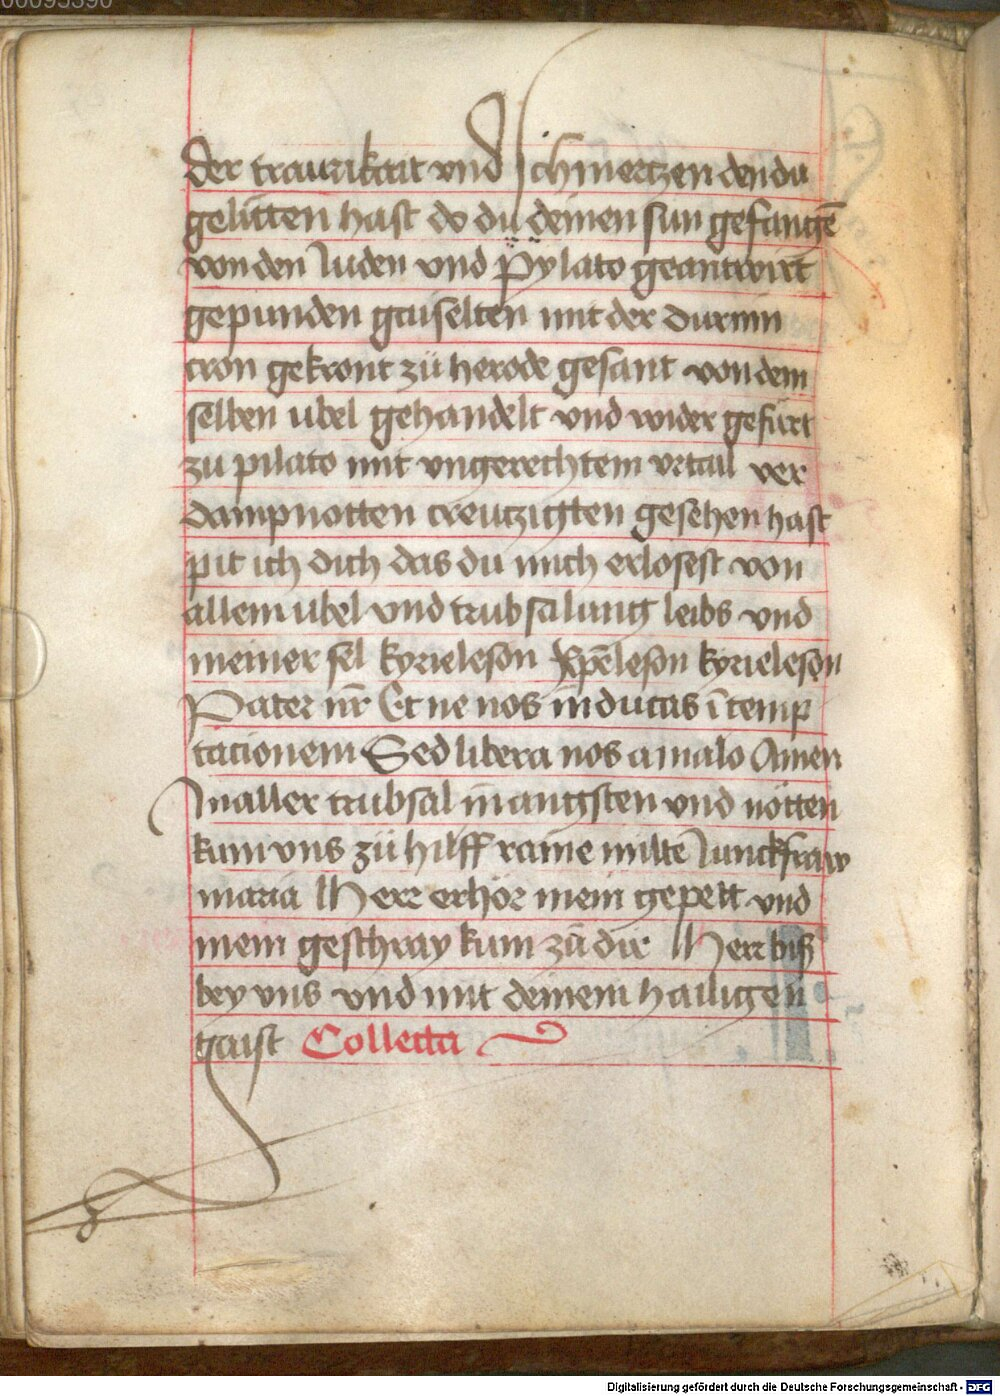 00095390
der traurikait vnd schmertzen den du
gelitten hast do du deinen sun gefangē
von den Juden vnd Pylato geantwirt
gepunden gaiselten mit der durnin
cron gekront zü herode gesant von dem
selben ubel gehandelt vnd wider gefürt
zu pilato mit vngerechtem vrtail ver
dampnotten creutzigten gesehen hast
pit ich dich das du mich erlosest von
allem ubel vnd trubsalung leibs vnd
meiner sel kyrieleson xpēleson kyrieleson
Pater nr̄ Et ne nos inducas ī temp
tacionem Sed libera nos a malo Amen
In aller trubsal in angsten vnd nötten
kum vns zü hilff raine milte Junckfraw
maria Herr erhör mein gepett vnd
mein geschray kum zů dir Herr biß
bey vns vnd mit deinem hailigen
gaist Collecta
Digitalisierung gefördert durch die Deutsche Forschungsgemeinschaft - DFG